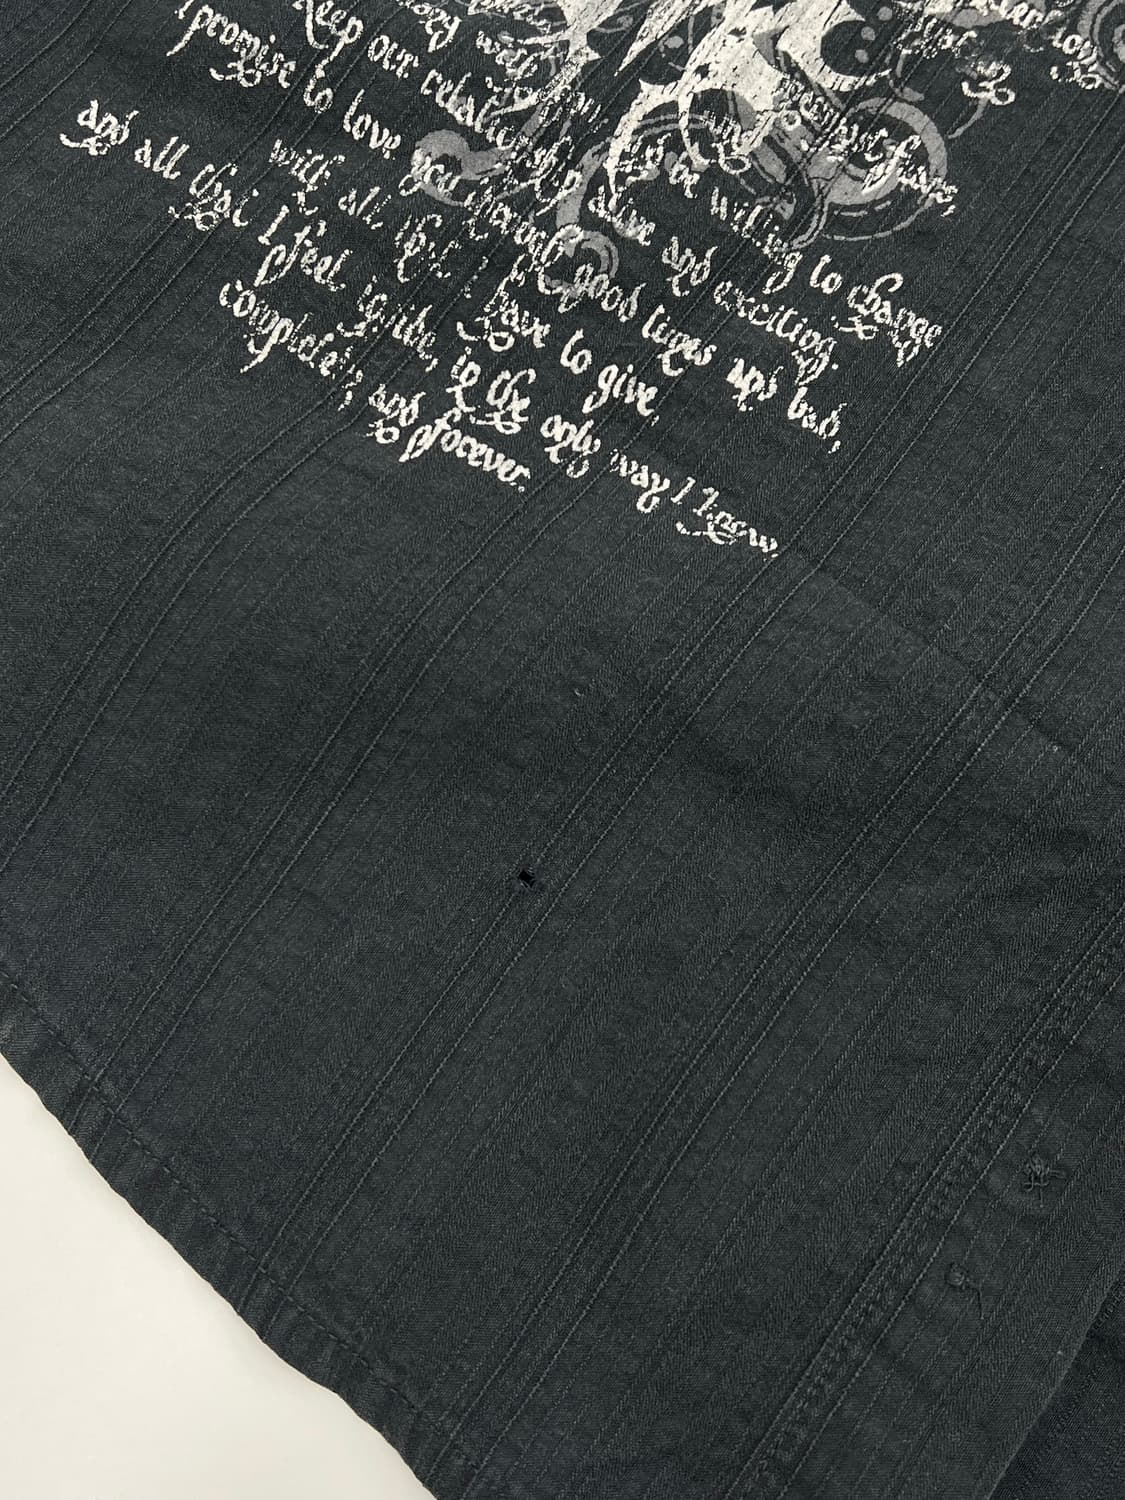 and permanent
be willing to change
keep our relationship alive and exciting.
I promise to love you through good times and bad,
with all that I have to give,
and all that I feel inside, in the only way I know,
completely and forever.